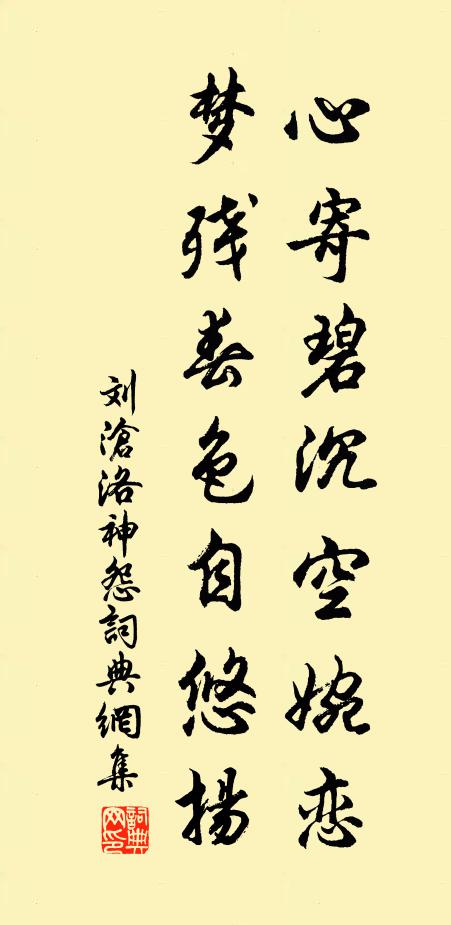 心寄碧沉空婉恋
梦残春色自悠扬
刘滄洛神怨詞典網集
詞典网印